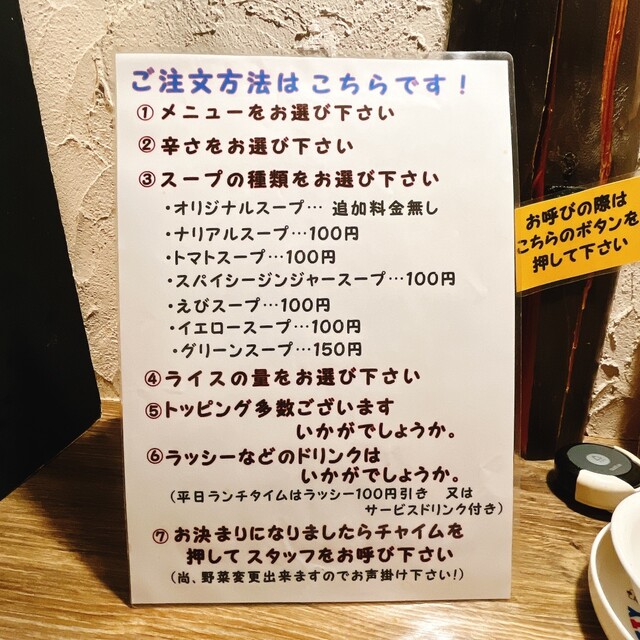 ご注文方法は こちらです！
①メニューをお選び下さい
②辛さをお選び下さい
③スープの種類をお選び下さい
・オリジナルスープ… 追加料金無し
・ナリアルスープ…100円
・トマトスープ…100円
・スパイシージンジャースープ…100円
・えびスープ…100円
・イエロースープ…100円
・グリーンスープ…150円
④ライスの量をお選び下さい
⑤トッピング多数ございます
いかがでしょうか。
⑥ラッシーなどのドリンクは
いかがでしょうか。
（平日ランチタイムはラッシー100円引き 又は
サービスドリンク付き）
⑦お決まりになりましたらチャイムを
押して スタッフをお呼び下さい
（尚、野菜変更出来ますのでお声掛け下さい！）
お呼びの際は
こちらのボタンを
押して下さい